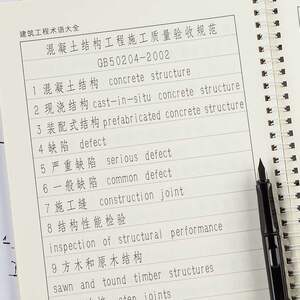 建筑工程术语大全
混凝土结构工程施工质量验收规范
GB50204-2002
1 混凝土结构 concrete structure
2 现浇结构 cast-in-situ concrete structure
3 装配式结构 prefabricated concrete structure
4 缺陷 defect
5 严重缺陷 serious defect
6 一般缺陷 common defect
7 施工缝 construction joint
8 结构性能检验
inspection of structural performance
9 方木和原木结构
sawn and tound timber structures
joints